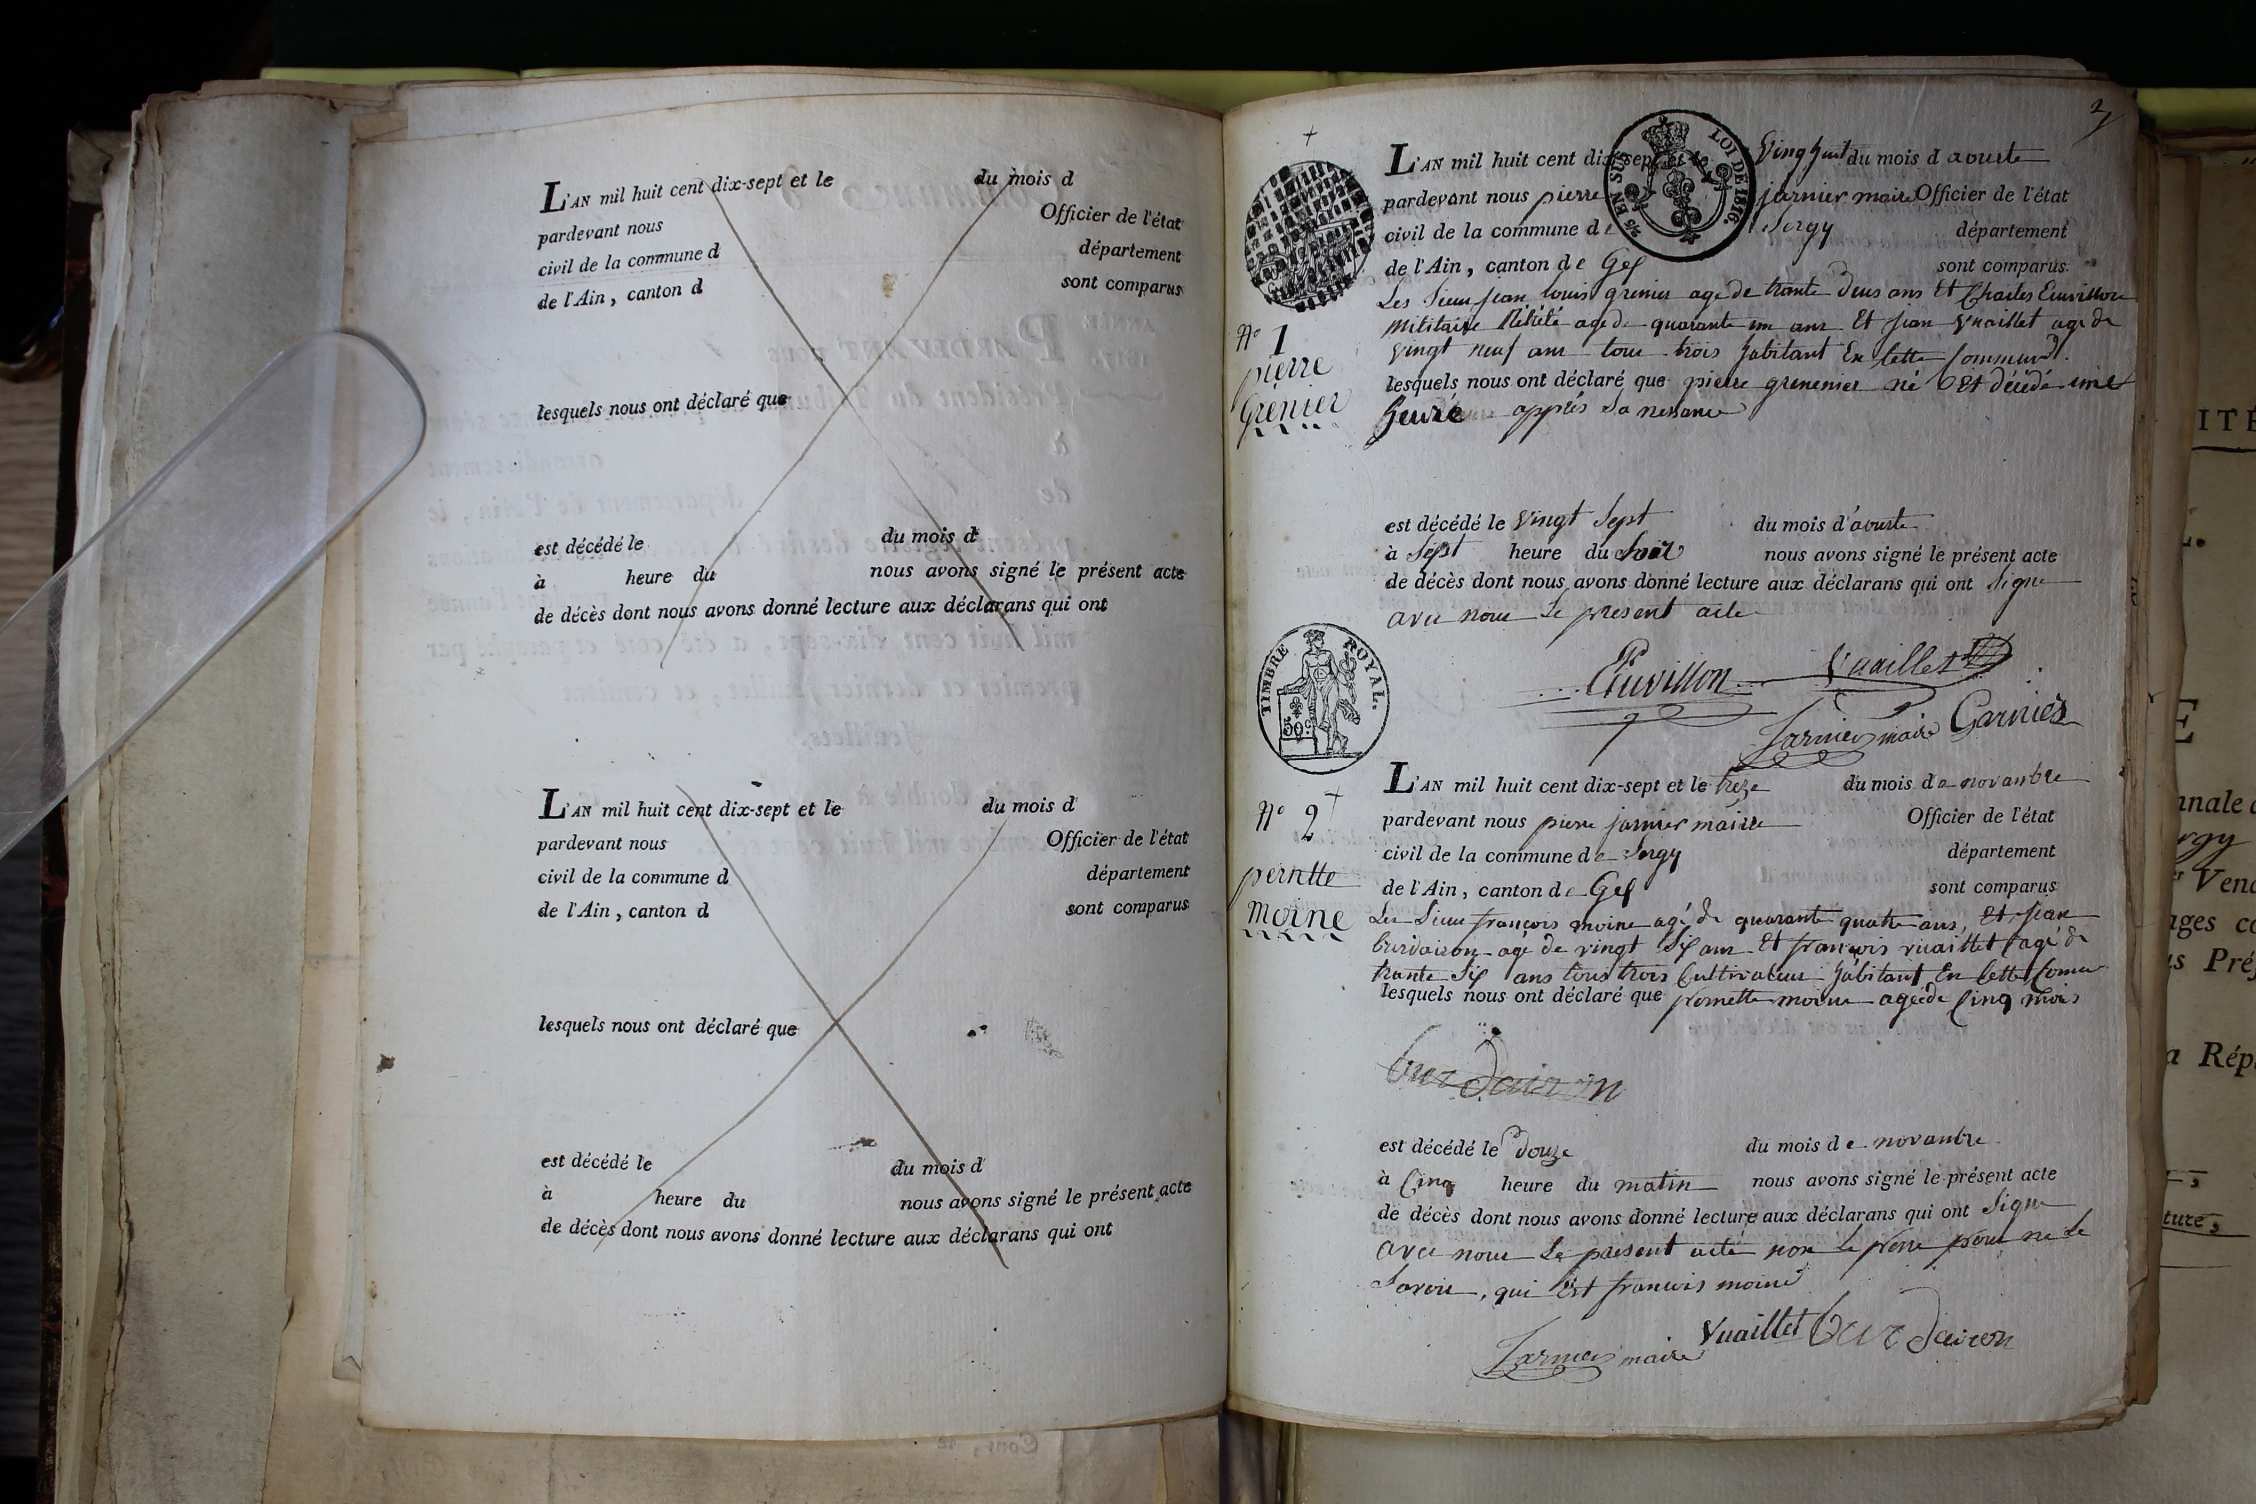 L'AN mil huit cent dix-sept et le du mois d
pardevant nous Officier de l'état
civil de la commune d département
de l'Ain, canton d sont comparus
lesquels nous ont déclaré que
est décédé le du mois d
à heure du nous avons signé le présent acte
de décès dont nous avons donné lecture aux déclarans qui ont
L'AN mil huit cent dix-sept et le du mois d
pardevant nous Officier de l'état
civil de la commune d département
de l'Ain, canton d sont comparus
lesquels nous ont déclaré que
est décédé le du mois d
à heure du nous avons signé le présent acte
de décès dont nous avons donné lecture aux déclarans qui ont
2
25 EN SUS LOI DE 1816.
L'AN mil huit cent dix-sept et le Ving huit du mois d aouste
pardevant nous pierre jarnier maire Officier de l'état
civil de la commune de Sergy département
de l'Ain, canton de Gex sont comparus
Les Sieur jean louis grenier age de trante deus ans Et Charles Emvillon
Militaire Retiré age de quarante un ans Et jean Vuaillet age de
vingt neuf ans tous trois habitant En cette Commune.
N° 1
pierre
Grenier
lesquels nous ont déclaré que pierre grenenier né Et décédé une
heure apprés sa nessance
est décédé le Vingt Sept du mois d'aouste
à Sept heure du Soir nous avons signé le présent acte
de décès dont nous avons donné lecture aux déclarans qui ont Signe
avec nous Le present acte
TIMBRE ROYAL.
50 c.
Vuaillet
Jarnier maire Garnier
L'AN mil huit cent dix-sept et le treze du mois de novambre
N° 2
pernette
moine
pardevant nous pierre jarnier maire Officier de l'état
civil de la commune de Sergy département
de l'Ain, canton de Gex sont comparus
Les Sieur françois moine agé de quarante quatre ans, Et jean
burdairon agé de vingt Six ans Et françois vuaillet agé de
trante Six ans tous trois Cultivateur habitant En cette Comu
lesquels nous ont déclaré que pernette moine agée de Cinq mois
burdairon
est décédé le douze du mois de novambre
à Cinq heure du matin nous avons signé le présent acte
de décès dont nous avons donné lecture aux déclarans qui ont Signe
avec nous Le présent acte non le pere pour ne le
Savoir, qui Est francois moine
Vuaillet burdairon
Jarnier maire
ITÉ
E
nnale d
rgy
Vend
ages co
s Préf
a Répu
ture,